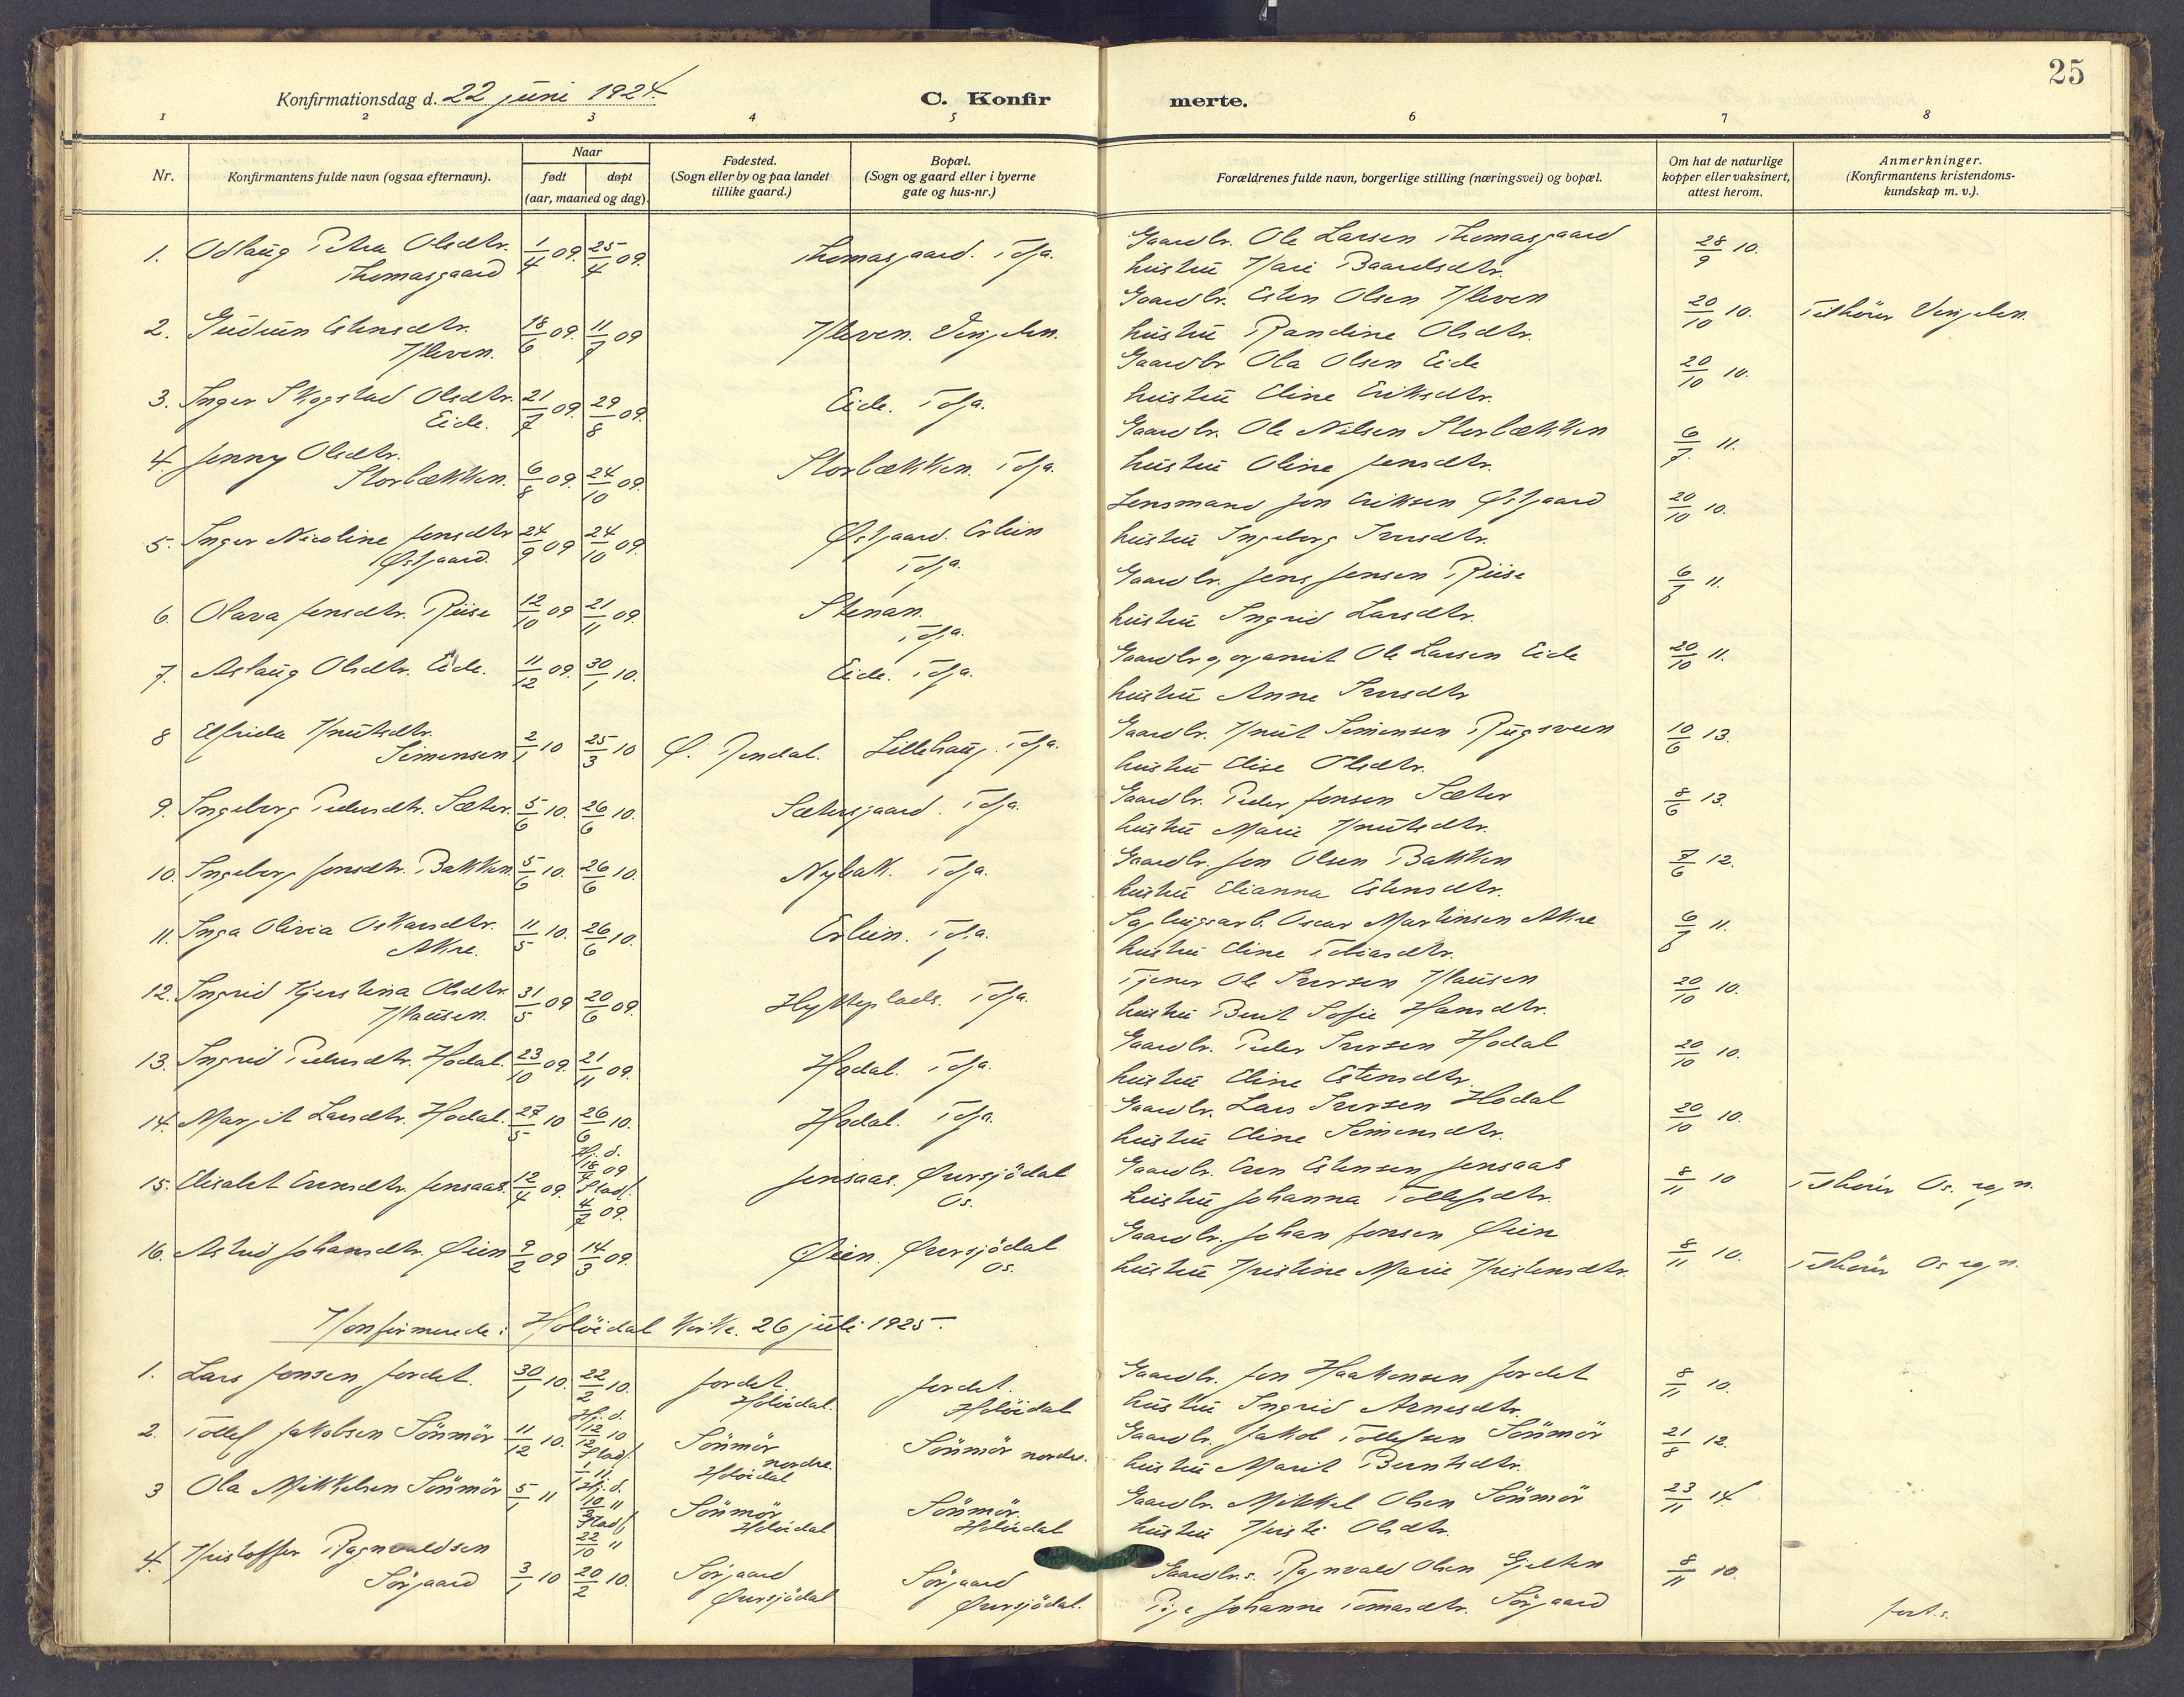 25
Konfirmationsdag d. 22 juni 1924. C. Konfirmerte.
1 2 3 4 5 6 7 8
Nr. Konfirmantens fulde navn (ogsaa efternavn). Naar født døpt (aar, maaned og dag). Fødested. (Sogn eller by og paa landet tillike gaard.) Bopæl. (Sogn og gaard eller i byerne gate og hus-nr.) Forældrenes fulde navn, borgerlige stilling (næringsvei) og bopæl. Om hat de naturlige kopper eller vaksinert, attest herom. Anmerkninger. (Konfirmantens kristendomskundskap m. v.).
1. Odlaug Petra Olsdtr. Thomasgaard 1/4 09. 25/4 09. Thomasgaard. Tolga. Gaardbr. Ole Larsen Thomasgaard
hustru Kari Baardsdtr. 28/9 10.
2. Gudrun Estensdtr. Kleven. 18/6 09. 11/7 09 Kleven. Vingelen. Gaardbr. Esten Olsen Kleven
hustru Randine Olsdtr. 20/10 10. Tilhører Vingelen.
3. Inger Skogstad Olsdtr. Eide. 21/7 09. 29/8 09. Eide. Tolga. Gaardbr. Ola Olsen Eide
hustru Eline Eriksdtr. 20/10 10.
4. Jenny Olsdtr. Storbækken. 6/8 09. 24/10 09. Storbækken. Tolga. Gaardbr. Ole Nilsen Storbækken
hustru Oline Jensdtr. 6/7 11.
5. Inger Nicoline Jonsdtr Østgaard. 24/9 09 24/10 09. Østgaard. Erlien Tolga. Lensmand Jon Eriksen Østgaard
hustru Ingeborg Iversdtr. 20/10 10.
6. Olava Jensdtr. Riise 12/10 09 21/11 09. Stenan. Tolga. Gaardbr. Jens Jensen Riise
hustru Ingrid Larsdtr. 6/8 11.
7. Aslaug Olsdtr. Eide. 11/12 09. 30/1 10. Eide. Tolga. Gaardbr og organist Ole Larsen Eide
hustru Anne Iversdtr 20/10 11.
8 Elfrida Knutsdtr. Simensen 2/1 10 25/3 10 Ø. Rendal. Lillehaug. Tolga. Gaardbr. Knut Simensen Rugsveen
hustru Elise Olsdtr. 10/6 13.
9. Ingeborg Pedersdtr. Sæter. 5/6 10. 26/6 10. Sætersgaard. Tolga. Gaardbr. Peder Jonsen Sæter
hustru Marie Knutsdtr. 8/6 13.
10. Ingeborg Jonsdtr. Bakken 5/6 10. 26/6 10. Nybak. Tolga. Gaardbr. Jon Olsen Bakken
hustru Elianna Estensdtr. 7/6 12.
11. Inga Olivia Oskarsdtr. Akre. 11/5 10. 26/6 10. Erlien. Tolga. Sagbrugsarb. Oscar Martinsen Akre
hustru Eline Tobiasdtr. 6/8 11.
12. Ingrid Kjerstina Olsdtr. Klausen. 31/5 09 20/6 09. Hytteplads. Tolga. Tjener Ole Iversen Klausen
hustru Berit Sofie Hansdtr. 20/10 10.
13. Ingrid Pedersdtr. Hodal. 23/10 09. 21/11 09. Hodal. Tolga. Gaardbr. Peder Iversen Hodal
hustru Eline Estensdtr. 20/10 10.
14. Margit Larsdtr. Hodal. 27/5 10 26/6 10. Hodal. Tolga. Gaardbr. Lars Iversen Hodal
hustru Eline Simensdtr. 20/10 10.
15. Elisabet Evensdtr. Jensaas. 12/4 09. Hj. d. 18/4 09 Stadf. 4/7 09. Jensaas. Øversjødal Os. Gaardbr. Even Estensen Jensaas
hustru Johanna Tollefsdtr. 8/11 10 Tilhører Os sogn.
16. Astrid Johansdtr. Øien 9/2 09 14/3 09. Øien. Øversjødal Os. Gaardbr. Johan Jonsen Øien
hustru Kristine Marie Kristensdtr. 8/11 10. Tilhører Os sogn.
Konfirmerede i Holøidal kirke. 26 juli 1925.
1. Lars Jonsen Jordet. 30/1 10. 22/2 10. Jordet. Holøidal. Jordet. Holøidal Gaardbr. Jon Haakensen Jordet
hustru Ingrid Arnesdtr. 8/11 10.
2. Tollef Jakobsen Sönmör 11/12 10. Hj. d. 12/12 10 Stadf. 1/1 11. Sönmör nordre. Holøidal Sönmör nordre. Gaardbr. Jakob Tollefsen Sönmör
hustru Marit Berntsdtr. 21/8 12.
3 Ola Mikkelsen Sönmör 5/1 11 Hj. d. 10/9 11 Stadf. 22/10 11 Sönmör Holøidal Sönmör. Holøidal Gaardbr. Mikkel Olsen Sönmör
hustru Kristi Olsdtr. 23/11 14
4. Kristoffer Ragnvaldsen Sörgaard 3/1 10 20/2 10. Sörgaard Øversjødal Sörgaard Øversjødal. Gaardbr.s. Ragnvald Olsen Gjelten
Pige Johanne Tomasdtr. Sörgaard 8/11 10.
forts.